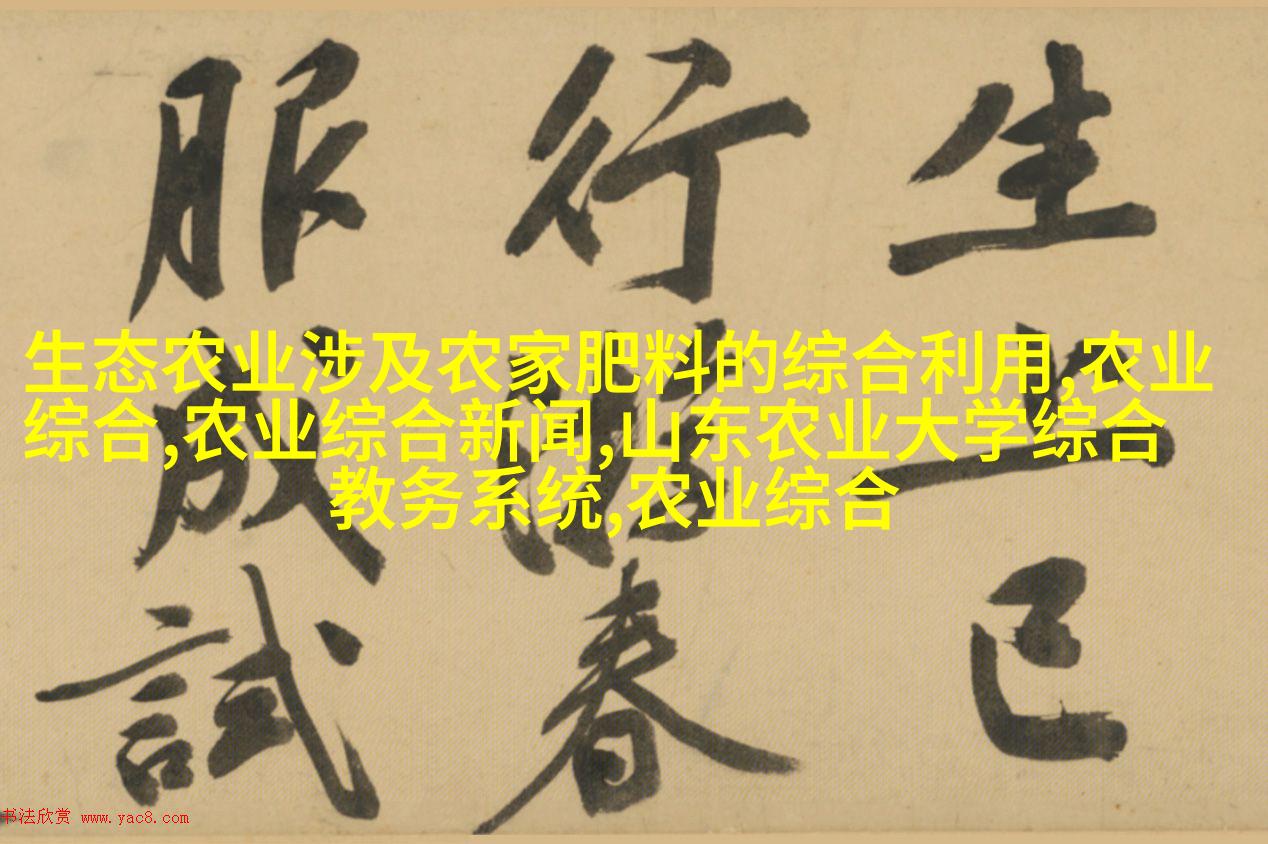 生态农业涉及农家肥料的综合利用,农业
综合,农业综合新闻,山东农业大学综合
教务系统,农业综合
生上巳
行春
服成試
书法欣赏 www.yac8.com